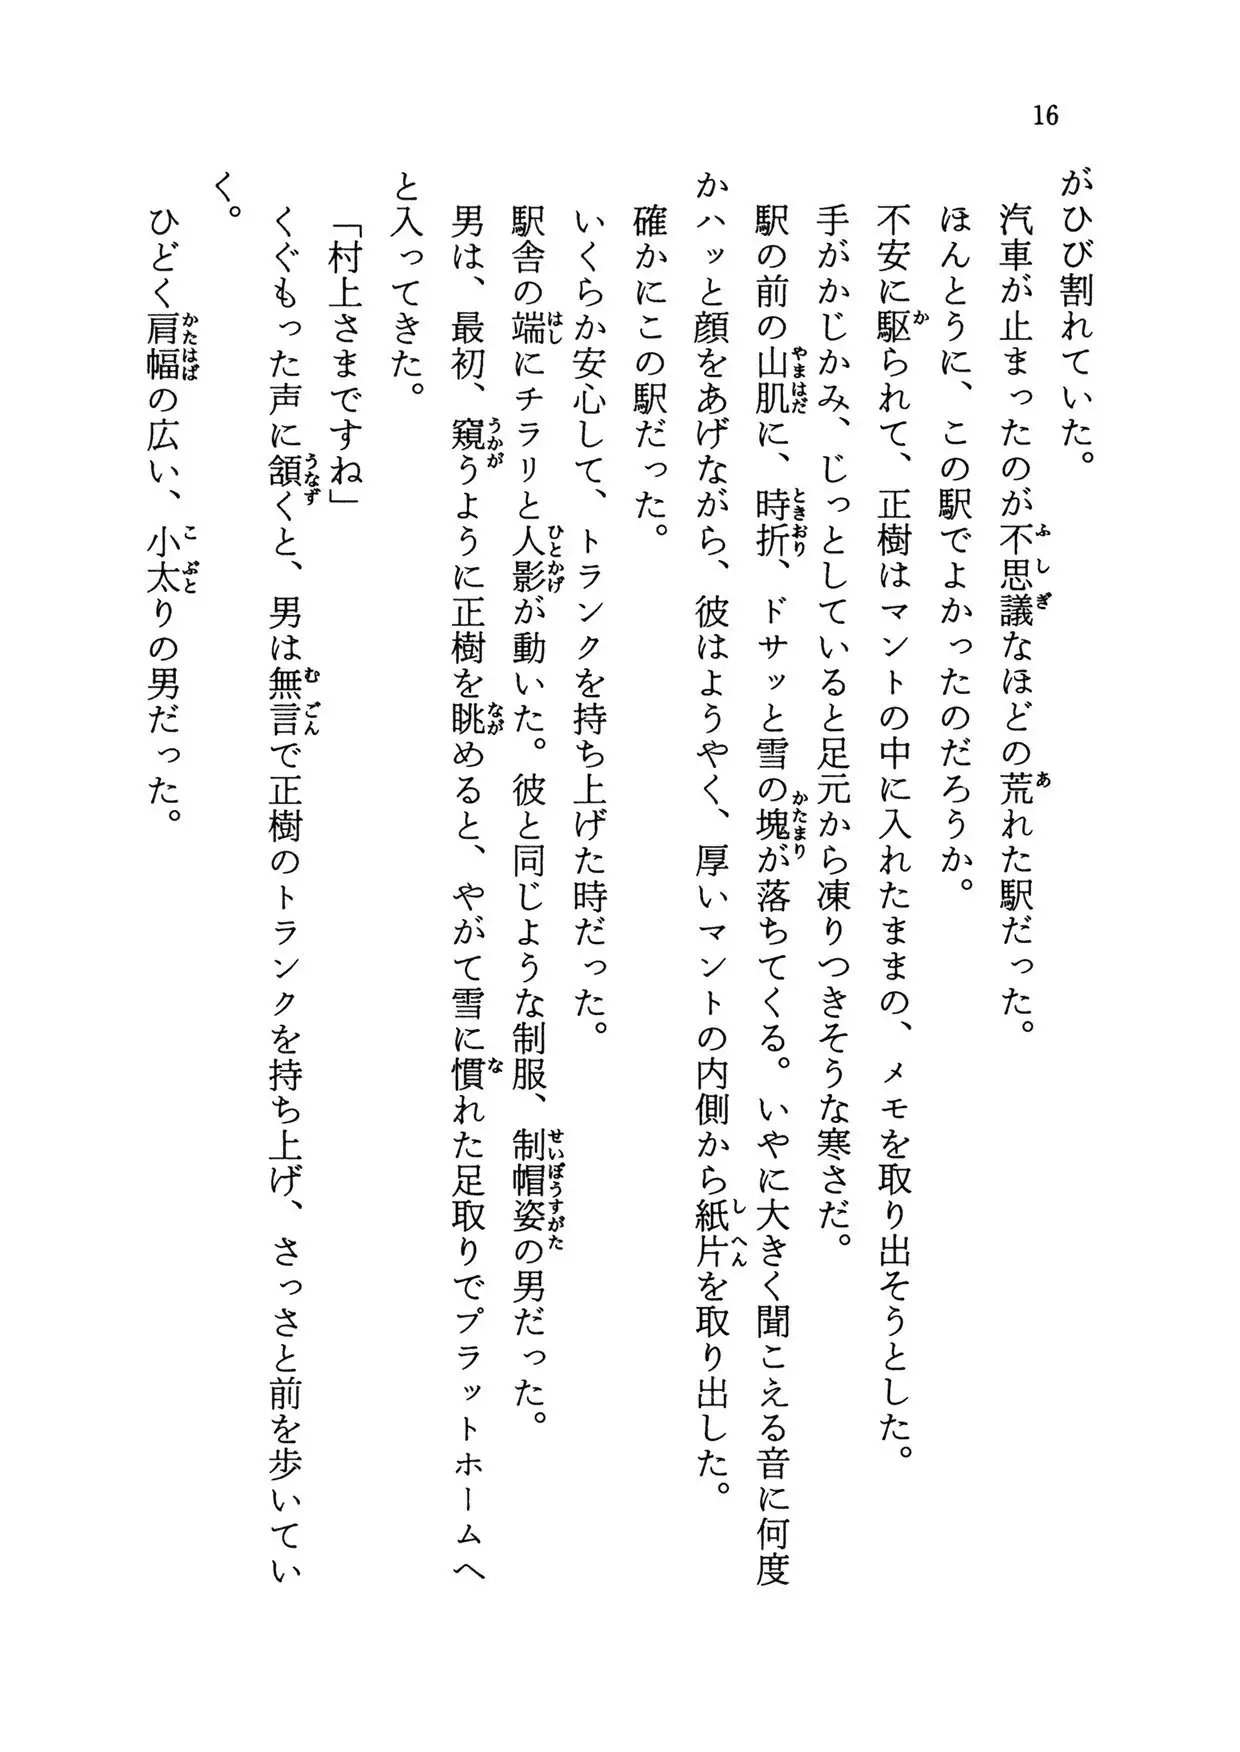 16
がひび割れていた。
汽車が止まったのが不思議なほどの荒れた駅だった。
ほんとうに、この駅でよかったのだろうか。
不安に駆られて、正樹はマントの中に入れたままの、メモを取り出そうとした。
手がかじかみ、じっとしていると足元から凍りつきそうな寒さだ。
駅の前の山肌に、時折、ドサッと雪の塊が落ちてくる。いやに大きく聞こえる音に何度
かハッと顔をあげながら、彼はようやく、厚いマントの内側から紙片を取り出した。
確かにこの駅だった。
いくらか安心して、トランクを持ち上げた時だった。
駅舎の端にチラリと人影が動いた。彼と同じような制服、制帽姿の男だった。
男は、最初、窺うように正樹を眺めると、やがて雪に慣れた足取りでプラットホームへ
と入ってきた。
「村上さまですね」
くぐもった声に頷くと、男は無言で正樹のトランクを持ち上げ、さっさと前を歩いてい
く。
ひどく肩幅の広い、小太りの男だった。